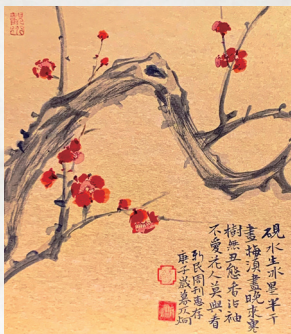 硯水生冰墨半干
畫梅須畫晚來寒
樹無丑態香沾袖
不愛花人莫與看
新民周刊惠存
庚子歲暮 炯